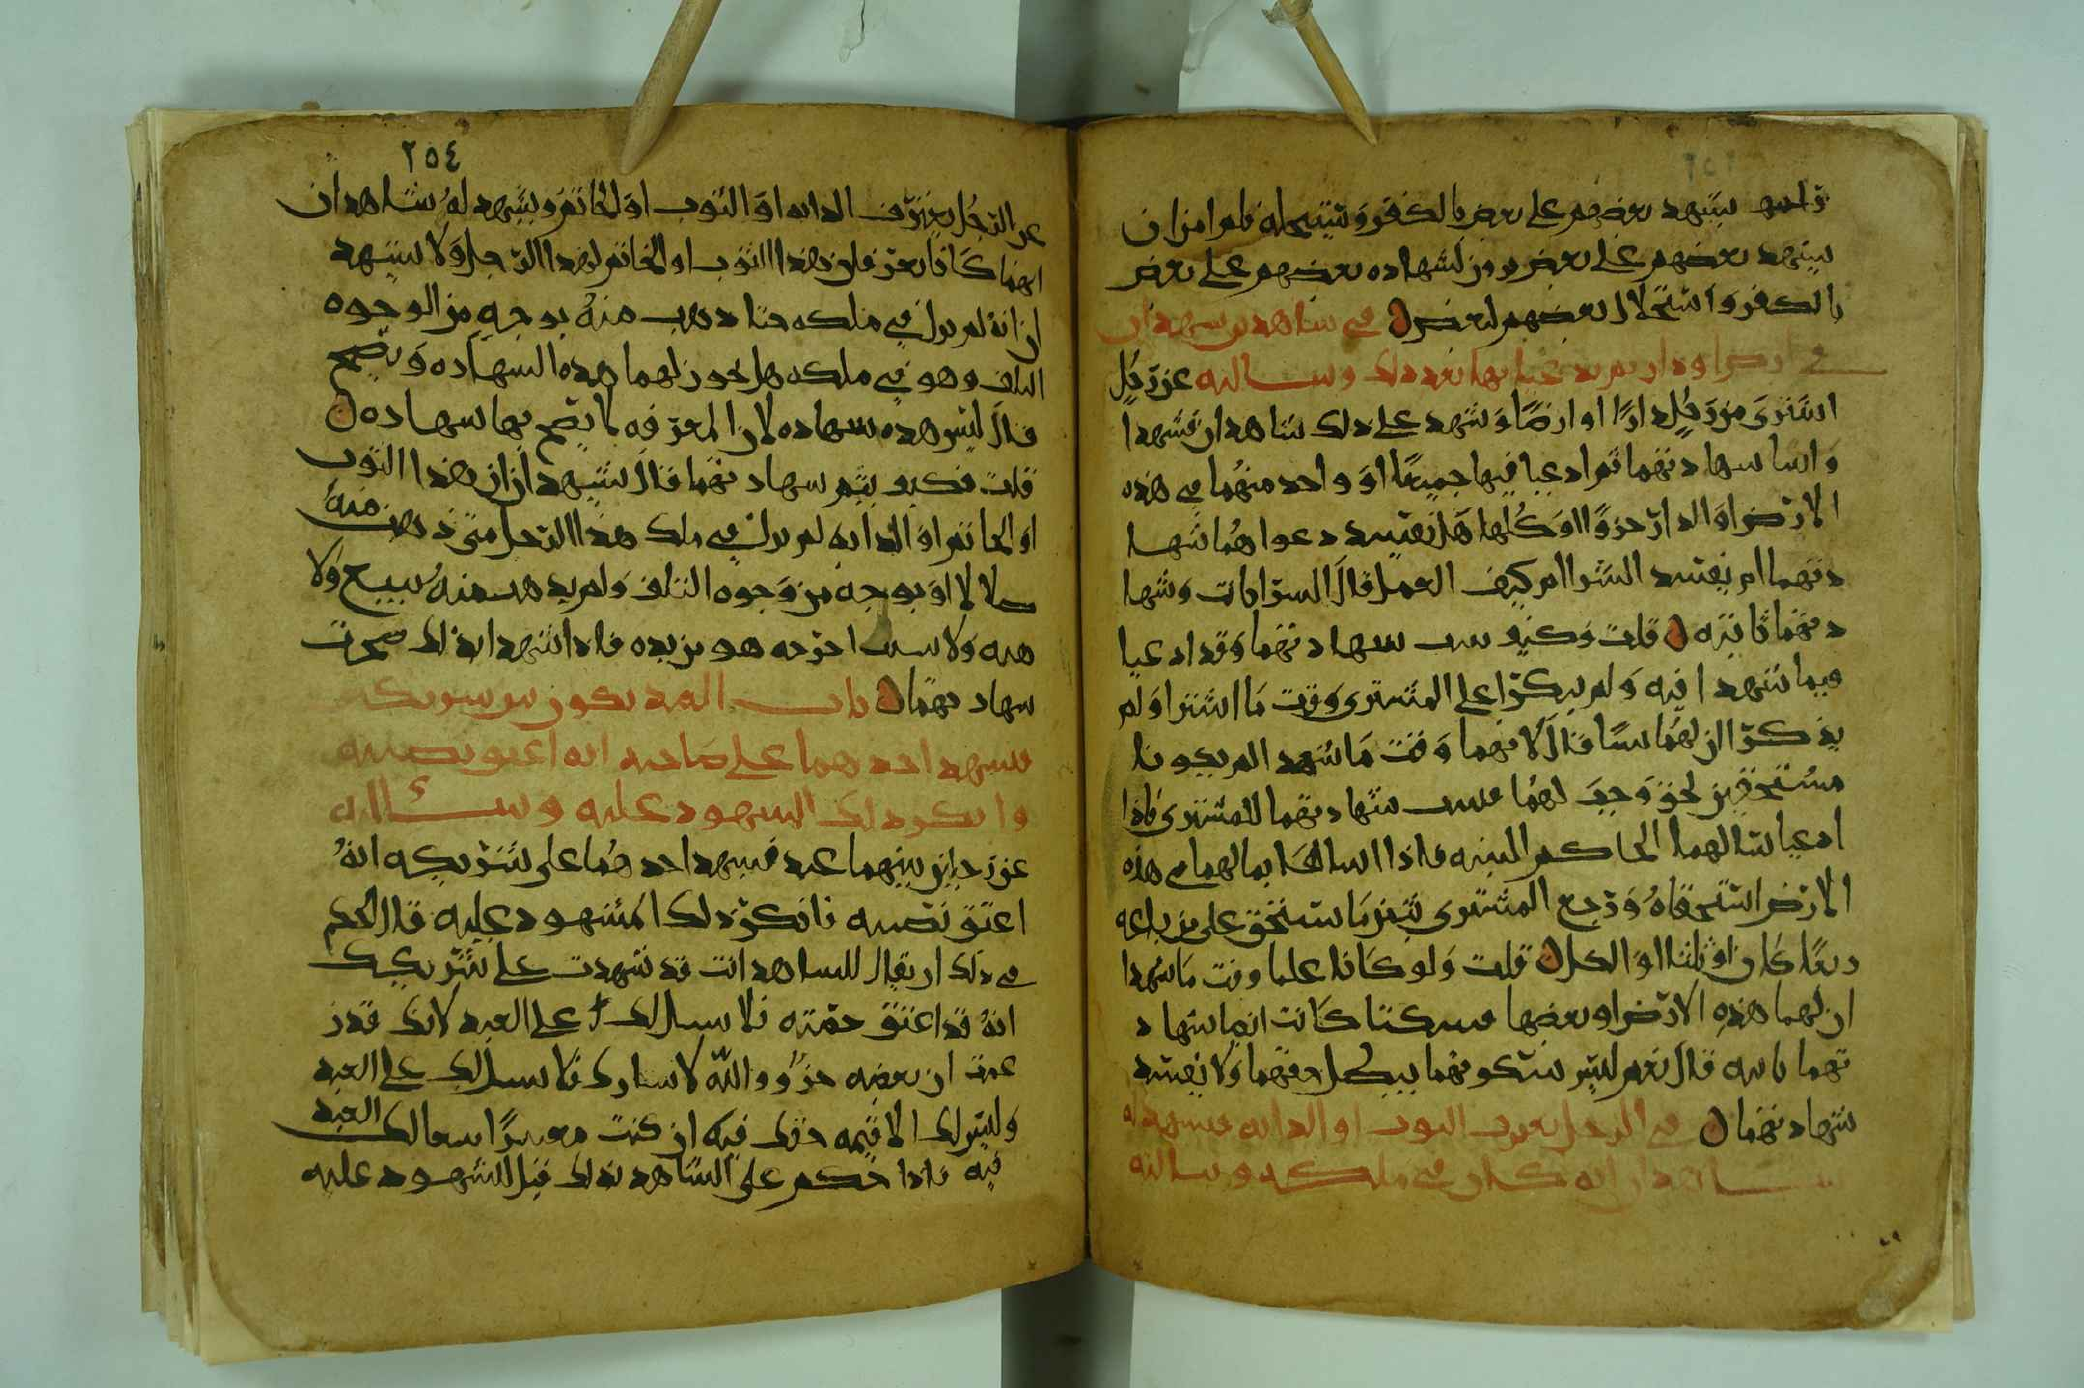 يشهد بعضهم على بعض بالكفر وتستحله فلم امران
يشهد بعضهم على بعض يجوز لشهاده بعضهم على بعض
بالكفر واستحلال بعضهم لبعض في شاهدين يشهدان
في ارض او دار ثم يدعيانها بعد ذلك وسالته عن رجل
اشترى من رجل دارًا او ارضًا وشهد على ذلك شاهدان فشهدا
واثبتا شهادتهما ثم ادعيا فيها جميعًا او واحد منهما في هذه
الارض او الدار جزوًا او كلها هل يفسد دعواهما شها
دتهما ام يفسد الشرا ام كيف العمل قال الشرا ثابت وشها
دتهما ثابته قلت وكيف شهادتهما وقد ادعيا
فيما شهدا فيه ولم ينكرا على المشتري وقت ما اشترا ولم
يذكرا ان لهما شيا قال لانهما وقت ما شهدا لم يكونا
مستحقين لحق وجب لهما شهادتهما للمشتري فاذا
ادعيا سالهما الحاكم البينه فاذا بما لهما في هذه
الارض استحقاه ورجع المشتري بثمن ما استحق على من باعه
ربعًا كان او ثلثا او الكل قلت ولو كانا علما وقت ما شهدا
ان لهما هذه الارض او بعضها فسكتا كانت ايضا شهاد
تهما ثابته قال نعم ليس سكوتهما يبطل حقهما ولا يفسد
شهادتهما في الرجل يعرف الثوب او الدابه فيشهد له
شاهدان انه كان في ملكه وسالته
٢٥٤
عن الرجل يعترف الدابه او الثوب او الخاتم ويشهد له شاهدان
انهما كانا يعرفان هذا الثوب او الخاتم لهذا الرجل ولا يشهد
ان انه لم يزل في ملكه حتا ذهب منه بوجه من الوجوه
التلف وهو في ملكه هل يجوز لهما هذه الشهاده ويصح
قال ليس هذه شهاده لان المعرفه لا يصح بها شهاده
قلت فكيف يتم شهادتهما قال يشهدان ان هذا الثوب
او الخاتم او الدابه لم يزل في ملك هذا الرجل متى ذهب منه
ضلالا او بوجه من وجوه التلف ولم يذهب منه ببيع ولا
هبه ولا بسبب اخرجه هو من يده فاذا شهدا بذلك صحت
شهادتهما باب العبد يكون بين شريكين
فيشهد احدهما على صاحبه انه اعتق نصيبه
وانكر ذلك المشهود عليه وسئالته
عن رجلين بينهما عبد فيشهد احدهما على شريكه انه
اعتق نصيبه فانكر ذلك المشهود عليه قال الحكم
في ذلك ان يقال للشاهد انت قد شهدت على شريكك
انه قد اعتق حقه فلا سبيل لك على العبد لانك قد ز
عمت ان بعضه حر ووالله لا شارك فلا سبيل لك على العبد
وليس لك الا قيمه حقك فيه ان كنت معسرًا سعا لك العبد
فيه فاذا حكم على الشاهد بذلك قيل للشهود عليه